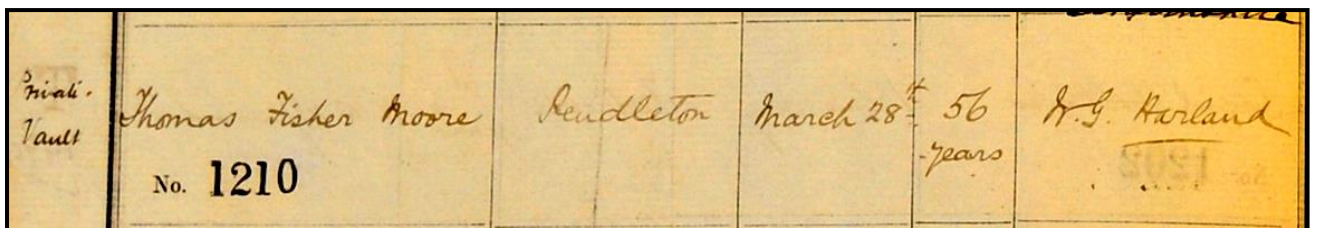 Private
Vault
Thomas Fisher Moore
No. 1210
Pendleton
March 28th
56
years
W.G. Harland